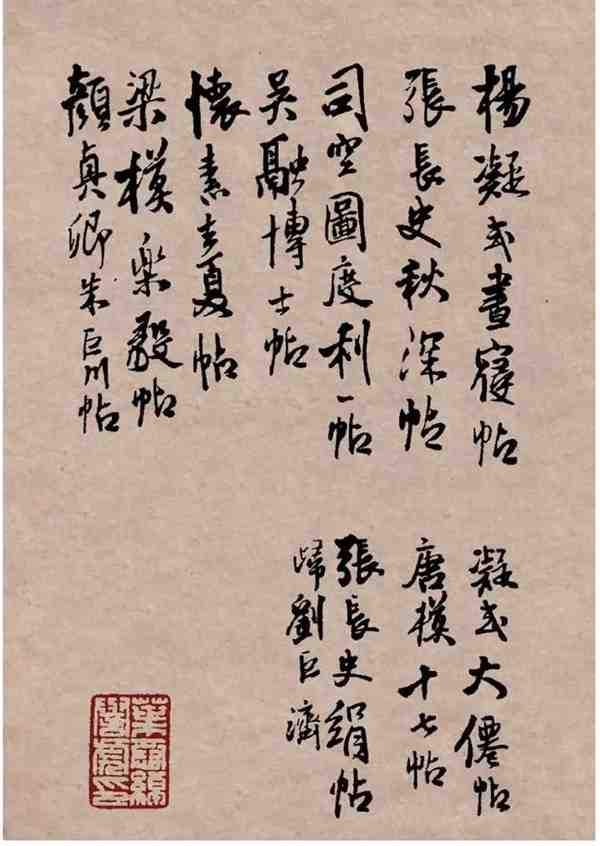 楊凝式晝寢帖
張長史秋深帖
司空圖度利一帖
吳融博士帖
懷素立夏帖
梁模樂毅帖
顏真卿朱巨川帖
凝式大僊帖
唐模十七帖
張長史絹帖
歸劉巨濟